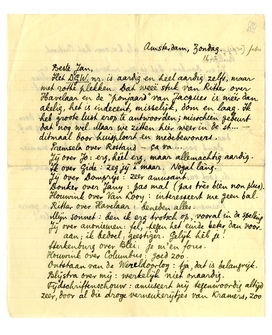 Amsterdam, Zondag.
Beste Jan,
Het D.G.W. nr. is aardig en heel aardig zelfs, maar
met rotte plekken. Dat weet stuk van Ritter over
Havelaar en de "ponjaard" van Jacques is méér dan
akelig, het is indecent, misselijk, dom en laag. Ik
het groote lust erop te antwoorden; misschien gebeurt
dat nog wel. Maar we zitten hier weer in de
allemaal door huisploert en medebewoners.
Franseln over Rostand: ça va.
Jij over Jo: erg, héél erg, maar allemachtig aardig.
Ik over Gide: zeg jij 't maar. Nogal lang.
Jij over Dompryz: zeer amusant.
Donker over Jany: pas mal (pas très bien non plus).
Houwink over Van Looy: interesseerde me geen bal.
Ritter over Havelaar: beneden alles.
Mijn sonnet: dee ik erg trotsch op, vooral in de spelling
Jij over anoniemen: fel, tegen het einde beter dan voor-
aan; ik bedoel, geestiger. Gelijk heb je!
Sterkenburg over Blei: je m'en fous.
Houwink over Columbus: goed zoo.
Ontstaan van de Wereldoorlog: ja, dat is belangrijk.
Blijstra over mij: werkelijk niet onaardig.
Tijdschriftenschouw: amuseert mij tegenwoordig altijd
zeer, door al die droge vernukerijtjes van Kramers, zoo